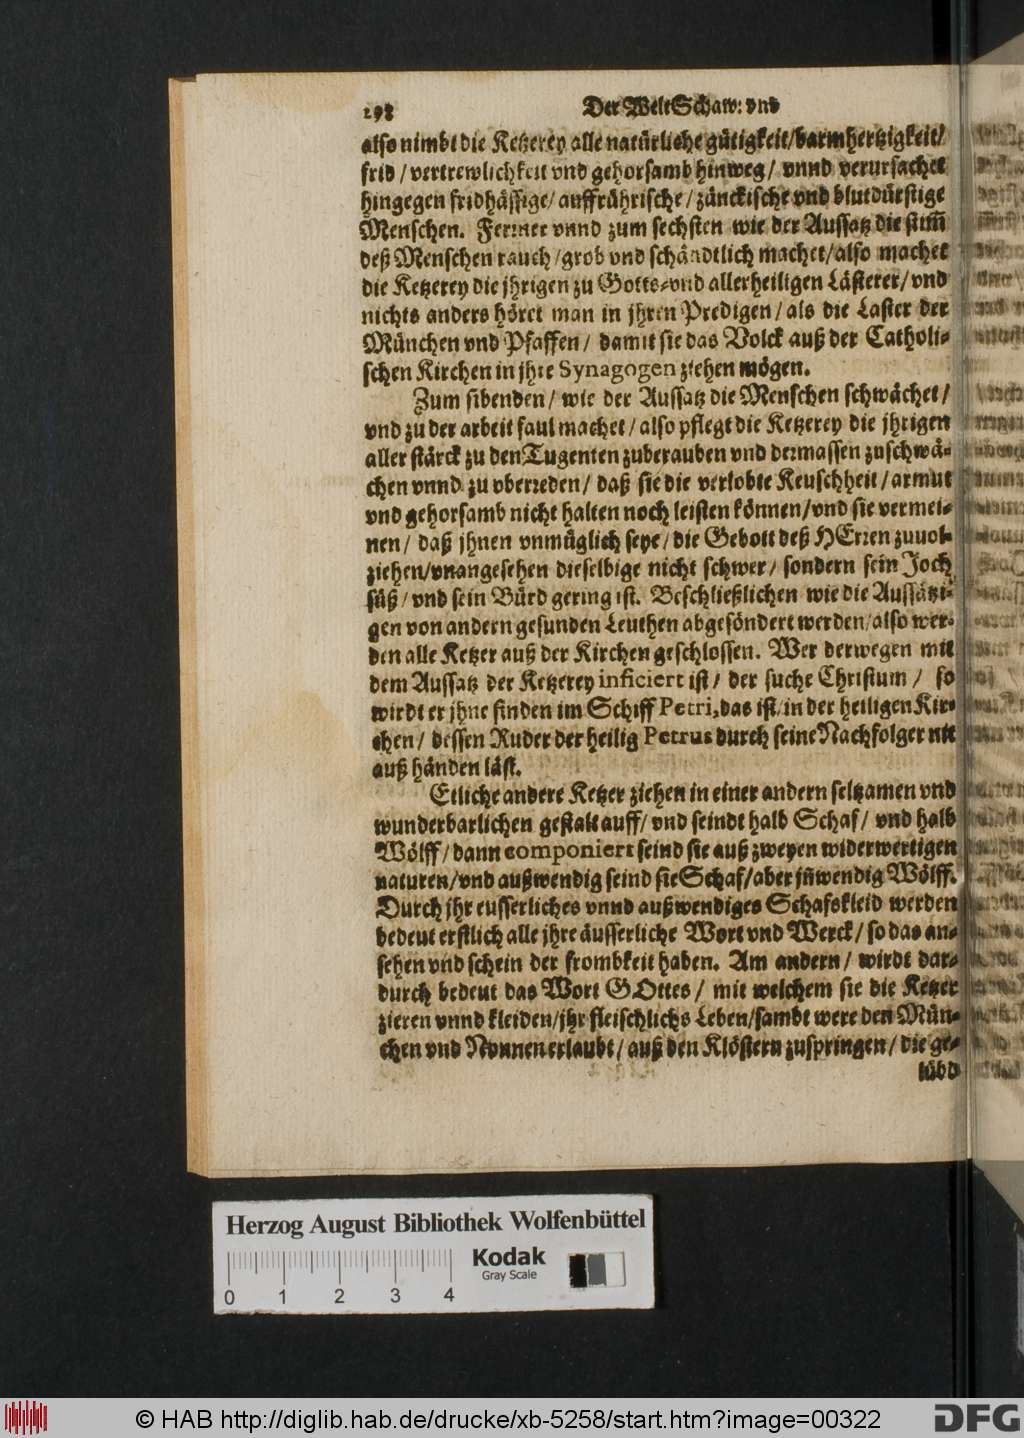 298 Der Welt Schaw: vnd
also nimbt die Ketzerey alle natürliche gütigkeit/barmhertzigkeit/
frid / vertrewlichkeit vnd gehorsamb hinweg / vnnd verursachet
hingegen fridhässige/ auffrührische / zänckische vnd blutdürstige
Menschen. Ferrner vnnd zum sechsten wie der Aussatz die stim̄
deß Menschen rauch /grob vnd schändtlich machet/also machet
die Ketzerey die jhrigen zu Gotts-vnd allerheiligen Lästerer/ vnd
nichts anders höret man in jhren Predigen / als die Laster der
München vnd Pfaffen / damit sie das Volck auß der Catholi-
schen Kirchen in jhre Synagogen ziehen mögen.
Zum sibenden / wie der Aussatz die Menschen schwächet /
vnd zu der arbeit faul machet / also pflegt die Ketzerey die jhrigen
aller stärck zu den Tugenten zuberauben vnd dermassen zuschwä-
chen vnnd zu vberreden / daß sie die verlobte Keuschheit / armut
vnd gehorsamb nicht halten noch leisten können/vnd sie vermei-
nen / daß jhnen vnmüglich seye / die Gebott deß HErren zuuol-
ziehen/vnangesehen dieselbige nicht schwer / sondern sein Joch
süß / vnd sein Bürd gering ist. Beschließlichen wie die Aussätzi-
gen von andern gesunden Leuthen abgesöndert werden/also wer-
den alle Ketzer auß der Kirchen geschlossen. Wer derwegen mit
dem Aussatz der Ketzerey inficiert ist / der suche Christum / so
wirdt er jhne finden im Schiff Petri, das ist/in der heiligen Kir-
chen / dessen Ruder der heilig Petrus durch seine Nachfolger nit
auß händen läst.
Etliche andere Ketzer ziehen in einer andern seltzamen vnd
wunderbarlichen gestalt auff/ vnd seindt halb Schaf / vnd halb
Wölff / dann componiert seind sie auß zweyen widerwertigen
naturen/vnd außwendig seind sie Schaf/aber jñwendig Wölff.
Durch jhr eusserliches vnnd außwendiges Schafskleid werden
bedeut erstlich alle jhre äusserliche Wort vnd Werck / so das an-
sehen vnd schein der frombkeit haben. Am andern / wirdt dar-
durch bedeut das Wort GOttes / mit welchem sie die Ketzer
zieren vnnd kleiden/jhr fleischlichs Leben/sambt were den Mün-
chen vnd Nonnen erlaubt / auß den Klöstern zuspringen / die ge-
lübd
Herzog August Bibliothek Wolfenbüttel
Kodak
Gray Scale
0 1 2 3 4
© HAB http://diglib.hab.de/drucke/xb-5258/start.htm?image=00322
DFG